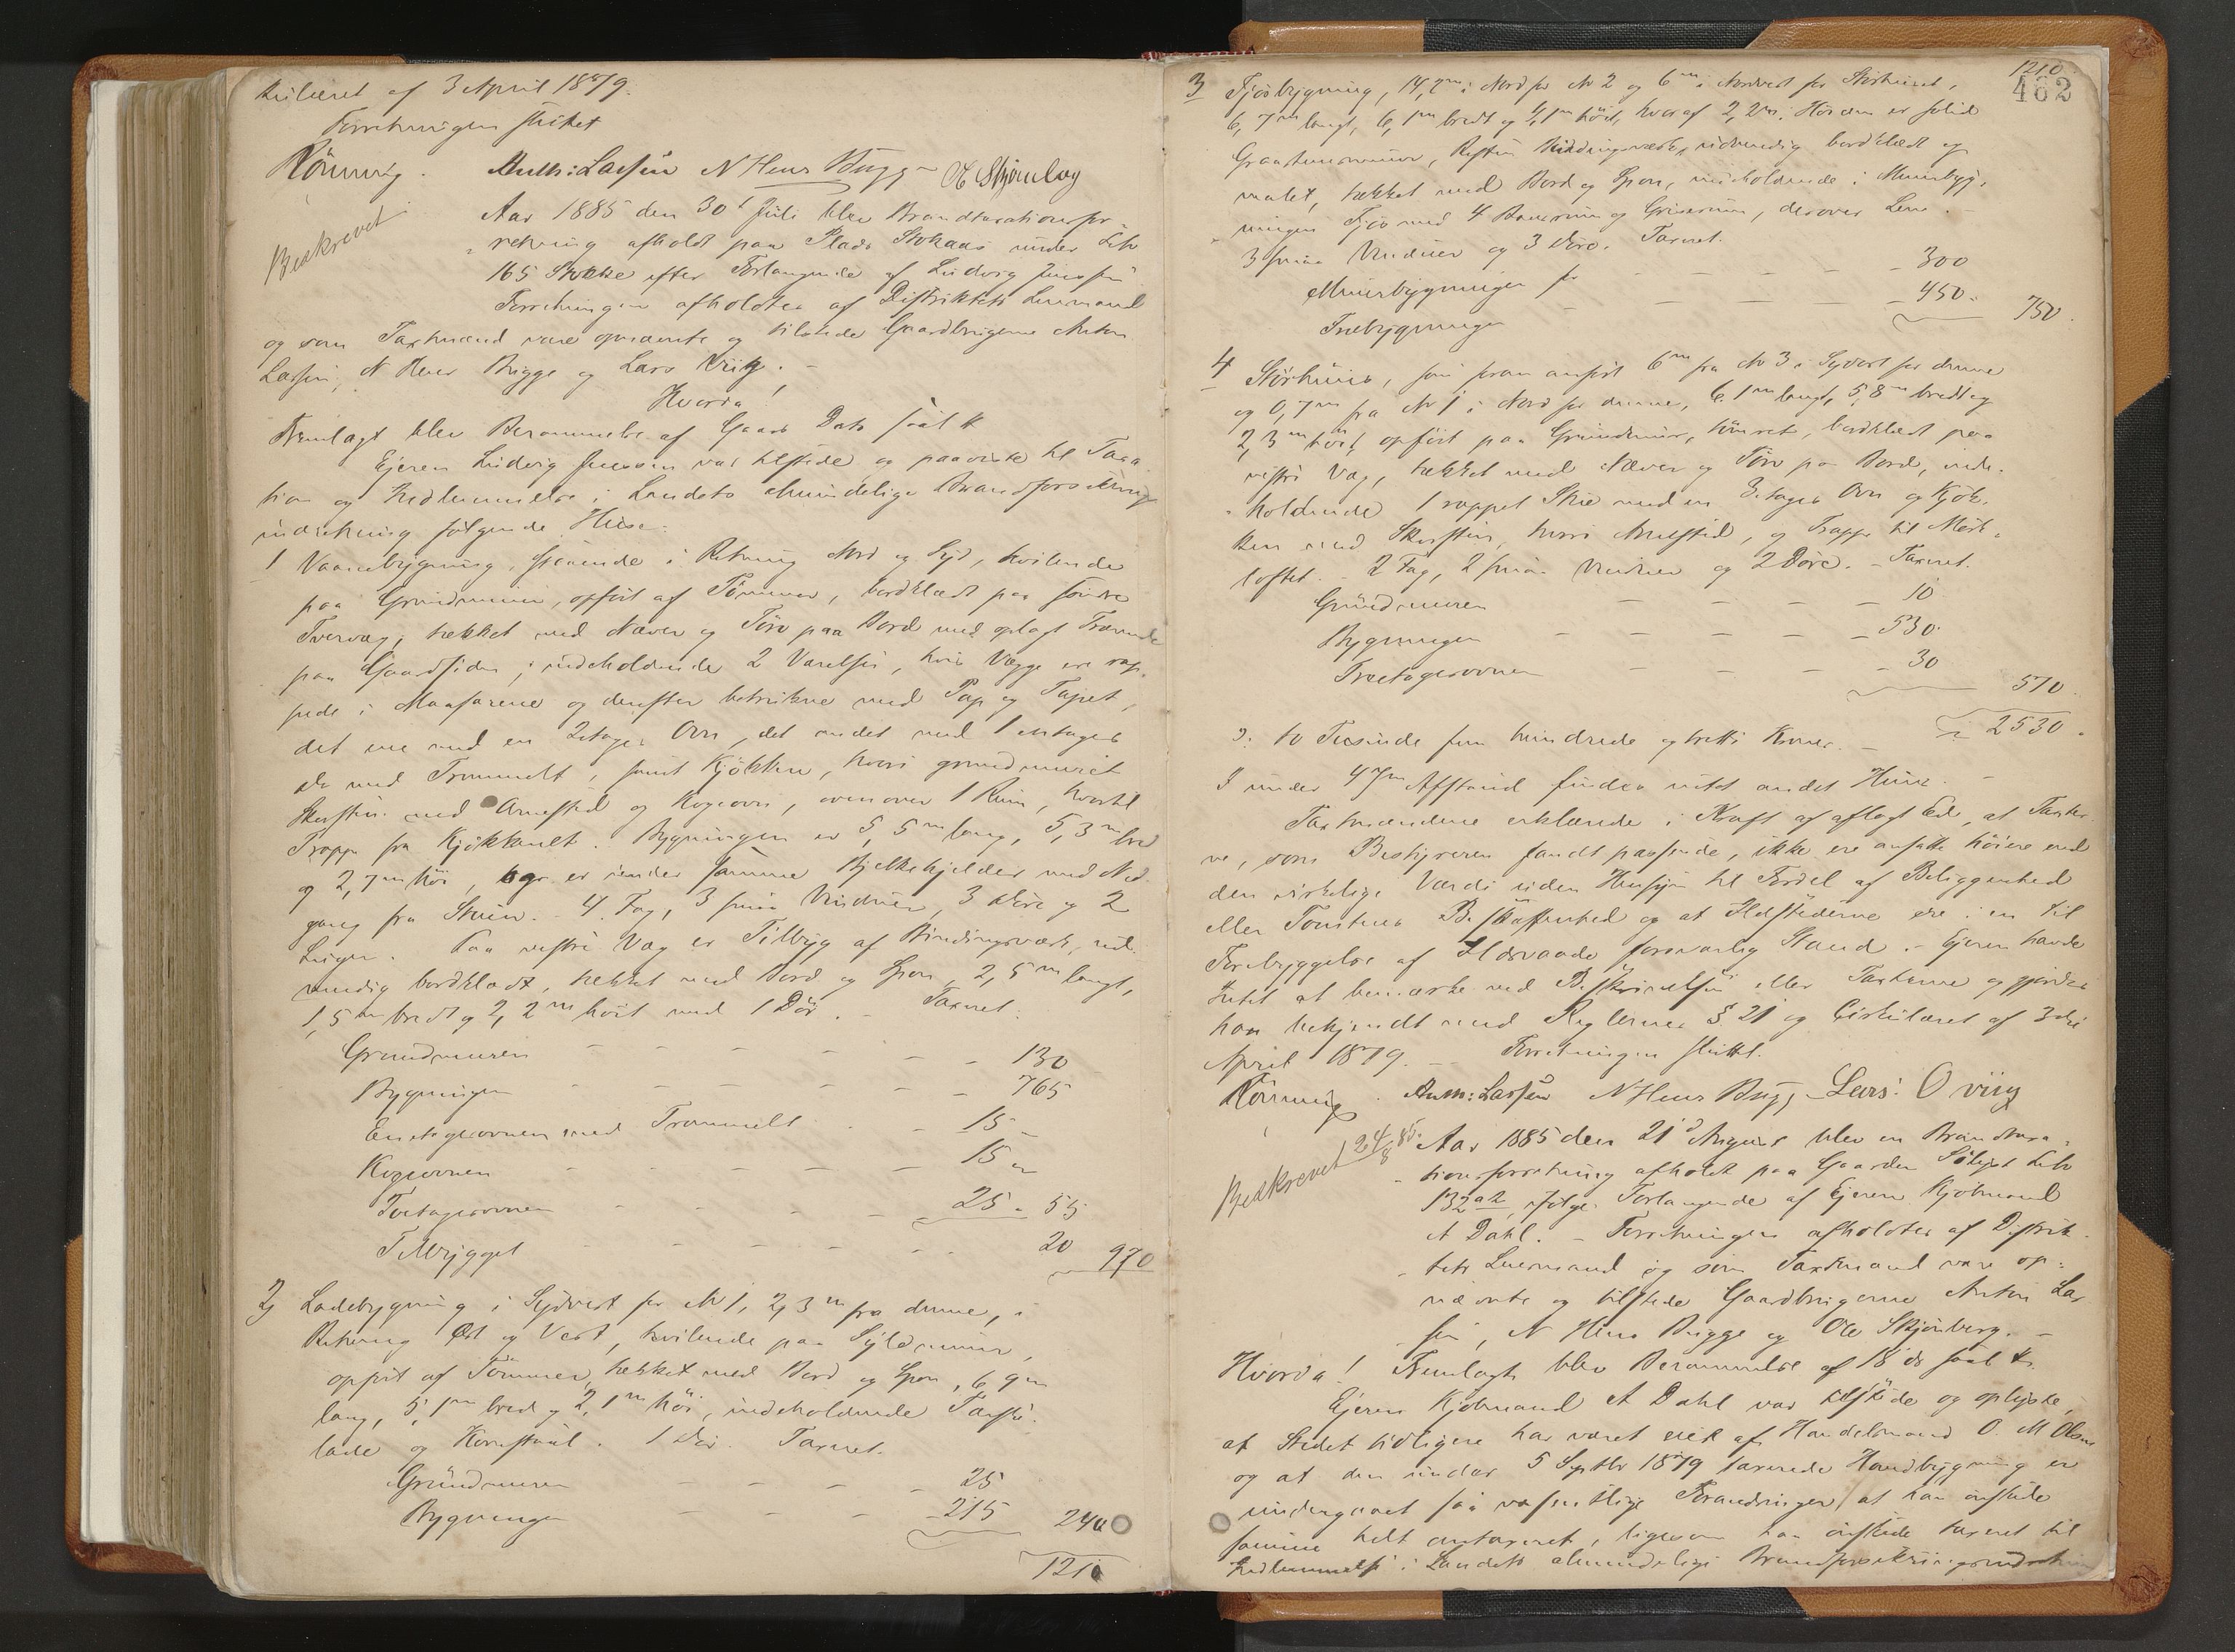 kulæret af 3 April 1879.
Forretningen sluttet
Rönning. Anth: Larssen N Hens Bugge O Skjønberg
Beskrevet
Aar 1885 den 30t Juli blev Brandtaxationsfor-
retning afholdt paa Plads Stokaas under Lb
165 Stokke efter Forlangende af Ludvig Jenssen
Forretningen afholdtes af Distriktets Lensmand
og som Taxtmænd vare opnævnte og tilstede Gaardbrugerne Anton
Larssen, N Hens Bugge og Lars Wiig. -
Hvorda!
Fremlagt blev Berammelse af Gaars Dato saal #
Ejeren Ludvig Jenssen var tilstede og paaviste til Taxa-
tion og Indlemmelse i Landets almindelige Brandforsikrings
indretning følgende Huse:
1 Vaanebygning, staaende i Retning Nord og Syd, hvilende
paa Grundmuur, opført af Tømmer, bordklædt paa søndre
Tvervæg, tækket med Næver og Törv paa Bord med oplagt
paa Gaardsiden; indeholdende 2 Værelser, hvis Vægge ere rap-
pede i Maafarene og derefter betrukne med Pap og Tapet,
det ene med en 2etages Ovn, det andet med 1 entages
do med Trommelt, samt Kjøkken, hvori grundmuret
Skorsten med Arnested og Kogeovn, ovenover 1 Rum, hvortil
Trappe fra Kjøkkenet. Bygningen er 5,5 m lang, 5,3 m bred
og 2,7 m høi, og er under samme Bjelkekjelder med Ned-
gang fra Stuen. - 4 Fag, 3 smaa Vinduer, 3 Döre og 2
Luger. Paa vestre Væg er Tilbyg af Bindingsværk, ud-
vendig bordklædt, tækket med Bord og Spon, 2,5 m langt,
1,5 m bredt og 2,2 m høit med 1 Dör. - Taxeret:
Grundmuren - - - - - - 130
Bygningen - - - - - 765
Enetagesovnen med Trommelt - - 15 -
Kogeovnen - - - - - 15 "
Toetagesovnen - - - - 25 - 55
Tilbygget - - - - - 20 970
2) Ladebygning i Sydvest for No 1, 2,3 m fra denne, i
Retning Öst og Vest, hvilende paa Syldmuur,
opført af Tömmer, tækket med Bord og Spon, 6,9 m
lang, 5,1 m bred og 2,1 m høi, indeholdende Tærske-
lade og Kornstaal. 1 Dör. Taxeret.
Grundmuren - - - - 25
Bygningen - - - - 215 240
1210
1210
462
3 Fjösbygning, 14,2 m i Nord for No 2 og 6 m i Nordvest for Störhuset,
6,7 m langt, 6,1 m bredt og 4,1 m höit, hvoraf 2,2 m i Höiden er solid
Graastensmuur, Resten Bindingsværk, udvendig bordklædt og
malet, tækket med Bord og Spon, indeholdende i Muurbyg-
ningen Fjös med 4 Baasrum og Griserum, derover Lem. -
3 smaa Vinduer og 3 Döre. Taxeret.
Muurbygningen for - - - - - 300
Træbygningen - - - - 450. 750.
4 Störhuus, som foran anført 6 m fra No 3 i Sydöst for denne
og 0,7 m fra No 1 i Nord for denne, 6,1 m langt, 5,8 m bredt og
2,3 m höit, opført paa Grundmuur, tömret, bordklædt paa
vestre Væg, tækket med Næver og Törv paa Bord, inde-
holdende 1 rappet Stue med en 3etages Ovn og Kjök-
ken med Skorsten, hvori Arnested, og Trappe til Mörk-
loftet. - 2 Fag, 2 smaa Vinduer og 2 Döre. - Taxeret.
Grundmuren - - - - - 10
Bygningen - - - - - 530.
Treetagesovnen - - - - 30
570.
2530.
ɔ: to Tusinde fem hundrede og tretti Kroner. -
I under 47 m Afstand findes intet andet Huus. -
Taxtmændene erklærede i Kraft af aflagt Ed, at Taxter-
ne, som Bestyreren fandt passende, ikke ere ansatte höiere end
den virkelige Værdi uden Hensyn til Fordel af Beliggenhed
eller Tomtens Beskaffenhed og at Ildstederne ere i en til
Forebyggelse af Ildsvaade forsvarlig Stand. - Ejeren havde
Intet at bemærke ved Beskrivelsen eller Taxterne og gjordes
han bekjendt med Reglernes § 21 og Cirkulæret af 3die
April 1879. - Forretningen sluttet.
Rönning. Anth: Larssen N Hens Bugge Lars: O viig
Beskrevet 24/8 85.
Aar 1885 den 21d August blev en Brandtaxa-
tionsforretning afholdt paa Gaarden Lb
132 a2, ifølge Forlangende af Ejeren Kjöbmand
A Dahl. - Forretningen afholdtes af Distrik-
tets Lensmand og som Taxtmænd vare op-
nævnte og tilstede Gaardbrugerne Anton Lar
sen, N Hens Bugge og Ole Skjönberg. -
Hvorda! Fremlagt blev Berammelse af 18 ds saal #.
Ejeren Kjöbmand A Dahl var tilstede og oplyste,
at Stedet tidligere har været eiet af Handelsmand O. M Olsen
og at den under 5 Septbr 1879 taxerede Hovedbygning er
undergaaet saa væsentlige Forandringer, at han önskede
samme helt omtaxeret, ligesom han önskede taxeret til
Indlemmelse i Landets almindelige Brandforsikringsindretning